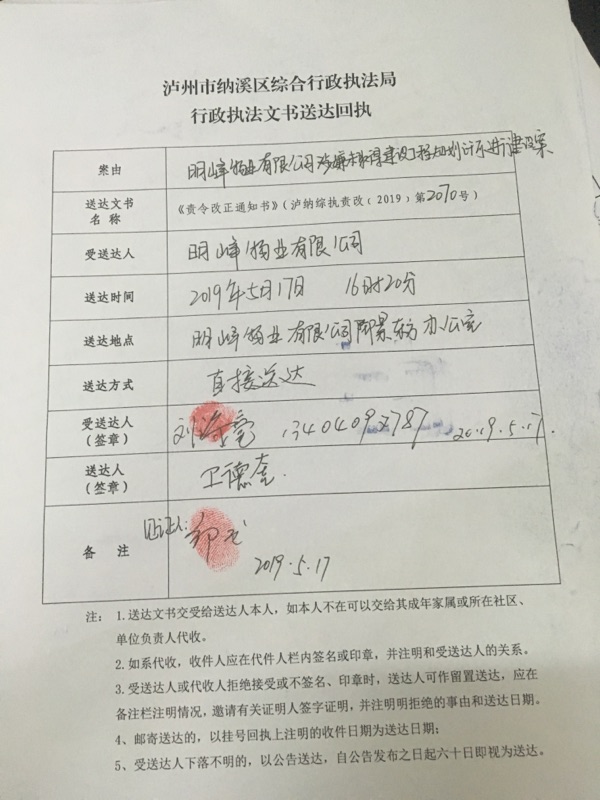 泸州市纳溪区综合行政执法局
行政执法文书送达回执
案由 明峰物业有限公司涉嫌未取得建设工程规划许可进行建设案
送达文书
名 称 《责令改正通知书》（泸纳综执责改﹝2019﹞第2070号）
受送达人 明峰物业有限公司
送达时间 2019年5月17日 16时20分
送达地点 明峰物业有限公司御景东方办公室
送达方式 直接送达
受送达人
（签章） 刘 2019.5.17.
送达人
（签章） 卫德奎.
备 注 见证人:
2019.5.17
注： 1.送达文书交受给送达人本人，如本人不在可以交给其成年家属或所在社区、
单位负责人代收。
2.如系代收，收件人应在代件人栏内签名或印章，并注明和受送达人的关系。
3.受送达人或代收人拒绝接受或不签名、印章时，送达人可作留置送达，应在
备注栏注明情况，邀请有关证明人签字证明，并注明明拒绝的事由和送达日期。
4、邮寄送达的，以挂号回执上注明的收件日期为送达日期；
5、受送达人下落不明的，以公告送达，自公告发布之日起六十日即视为送达。